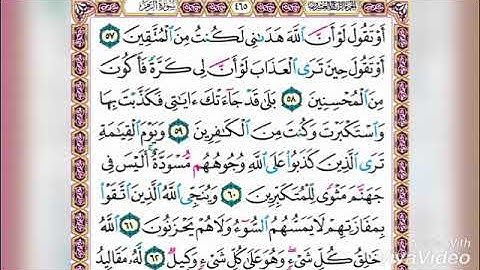 سُورَةُ الزُّمَرِ ٤٦٥ الجزء الرابع والعشرون
أَوْ تَقُولَ لَوْ أَنَّ ٱللَّهَ هَدَىٰنِي لَكُنتُ مِنَ ٱلْمُتَّقِينَ ٥٧
أَوْ تَقُولَ حِينَ تَرَى ٱلْعَذَابَ لَوْ أَنَّ لِي كَرَّةً فَأَكُونَ
مِنَ ٱلْمُحْسِنِينَ ٥٨ بَلَىٰ قَدْ جَآءَتْكَ ءَايَٰتِي فَكَذَّبْتَ بِهَا
وَٱسْتَكْبَرْتَ وَكُنتَ مِنَ ٱلْكَٰفِرِينَ ٥٩ وَيَوْمَ ٱلْقِيَٰمَةِ
تَرَى ٱلَّذِينَ كَذَبُوا۟ عَلَى ٱللَّهِ وُجُوهُهُم مُّسْوَدَّةٌ أَلَيْسَ فِي
جَهَنَّمَ مَثْوًى لِّلْمُتَكَبِّرِينَ ٦٠ وَيُنَجِّي ٱللَّهُ ٱلَّذِينَ ٱتَّقَوْا۟
بِمَفَازَتِهِمْ لَا يَمَسُّهُمُ ٱلسُّوٓءُ وَلَا هُمْ يَحْزَنُونَ ٦١ ٱللَّهُ
خَٰلِقُ كُلِّ شَيْءٍ وَهُوَ عَلَىٰ كُلِّ شَيْءٍ وَكِيلٌ ٦٢ لَّهُۥ مَقَالِيدُ
With
VivaVideo